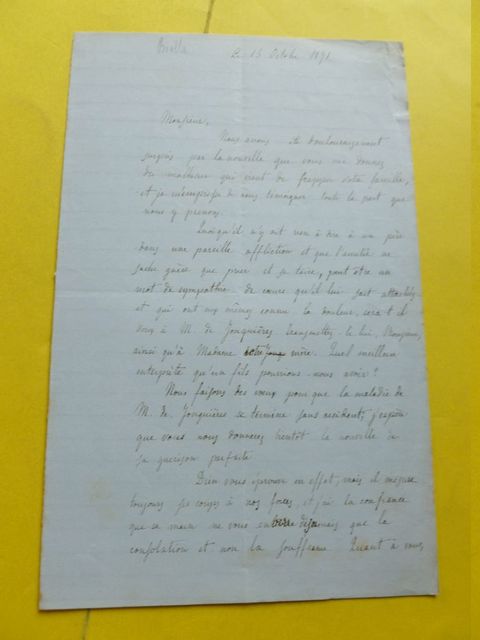 Le 15 Octobre 1871
Monsieur,
Nous avons été douloureusement
surpris par la nouvelle que vous me donnez
du malheur qui vient de frapper votre famille,
et je m'empresse de vous témoigner toute la part que
nous y prenons.
Quoiqu'il n'y ait rien à dire à un père
dans une pareille affliction et que l'amitié ne
sache guère que prier et se taire, peut être un
mot de sympathie de cœurs qu'il lui sait attachés
et qui ont eux mêmes connu la douleur, sera t il
doux à M. de Jonquières. Transmettez-le lui, Monsieur,
ainsi qu'à Madame votre mère. Quel meilleur
interprète qu'un fils pourrions-nous avoir ?
Nous faisons des vœux pour que la maladie de
M. de Jonquières se termine sans accident, j'espère
que vous nous donnerez bientôt la nouvelle de
sa guérison parfaite
Dieu vous éprouve en effet, mais il mesure
toujours ses coups à nos forces, et j'ai la confiance
que sa main ne vous enverra désormais que la
consolation et non la souffrance. Quant à vous,